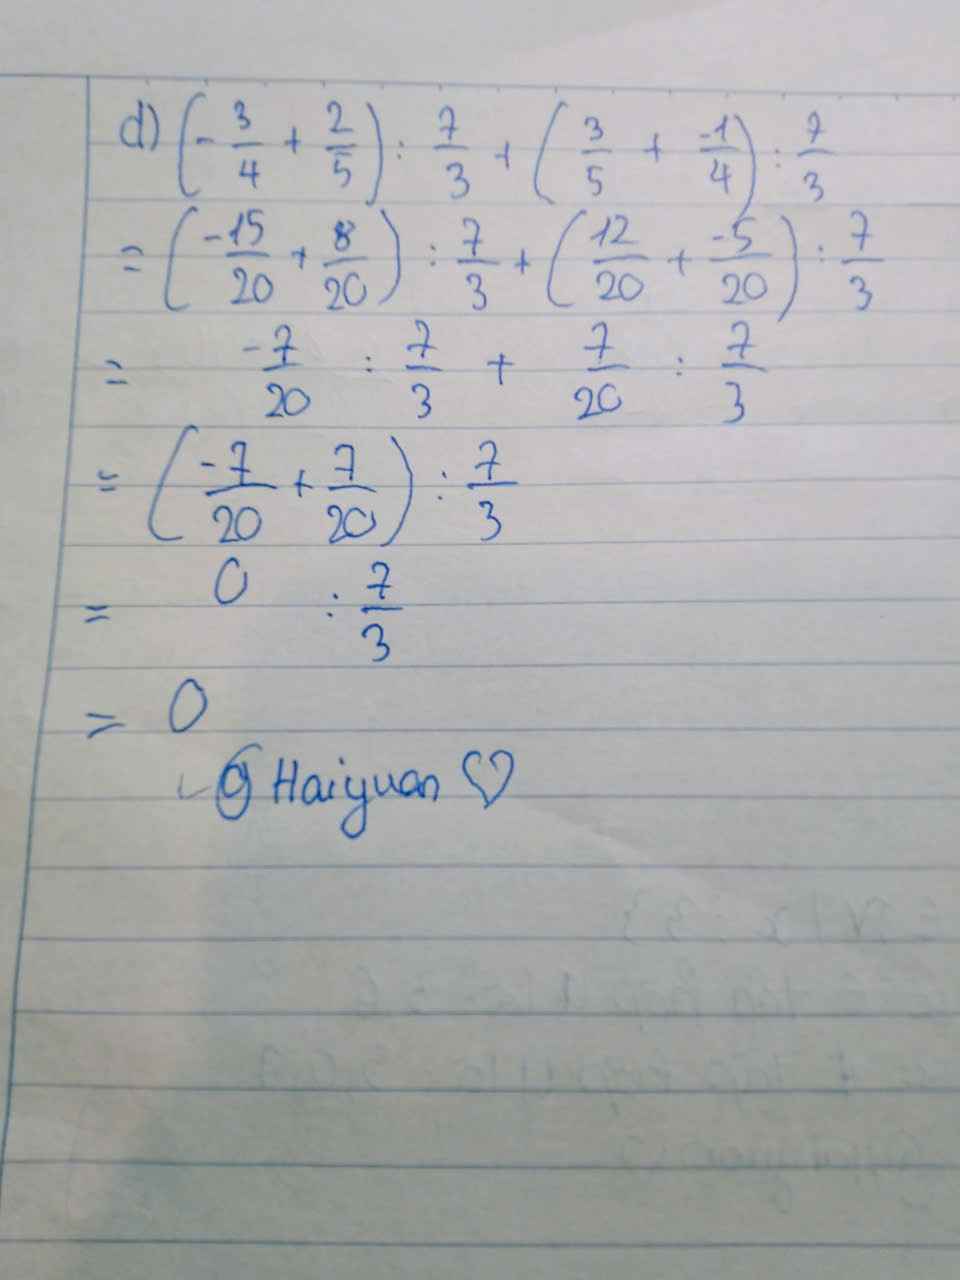 d) (-3/4 + 2/5) : 7/3 + (3/5 + -1/4) : 7/3
= (-15/20 + 8/20) : 7/3 + (12/20 + -5/20) : 7/3
= -7/20 : 7/3 + 7/20 : 7/3
= (-7/20 + 7/20) : 7/3
= 0 : 7/3
= 0
@Haiyuan ♡